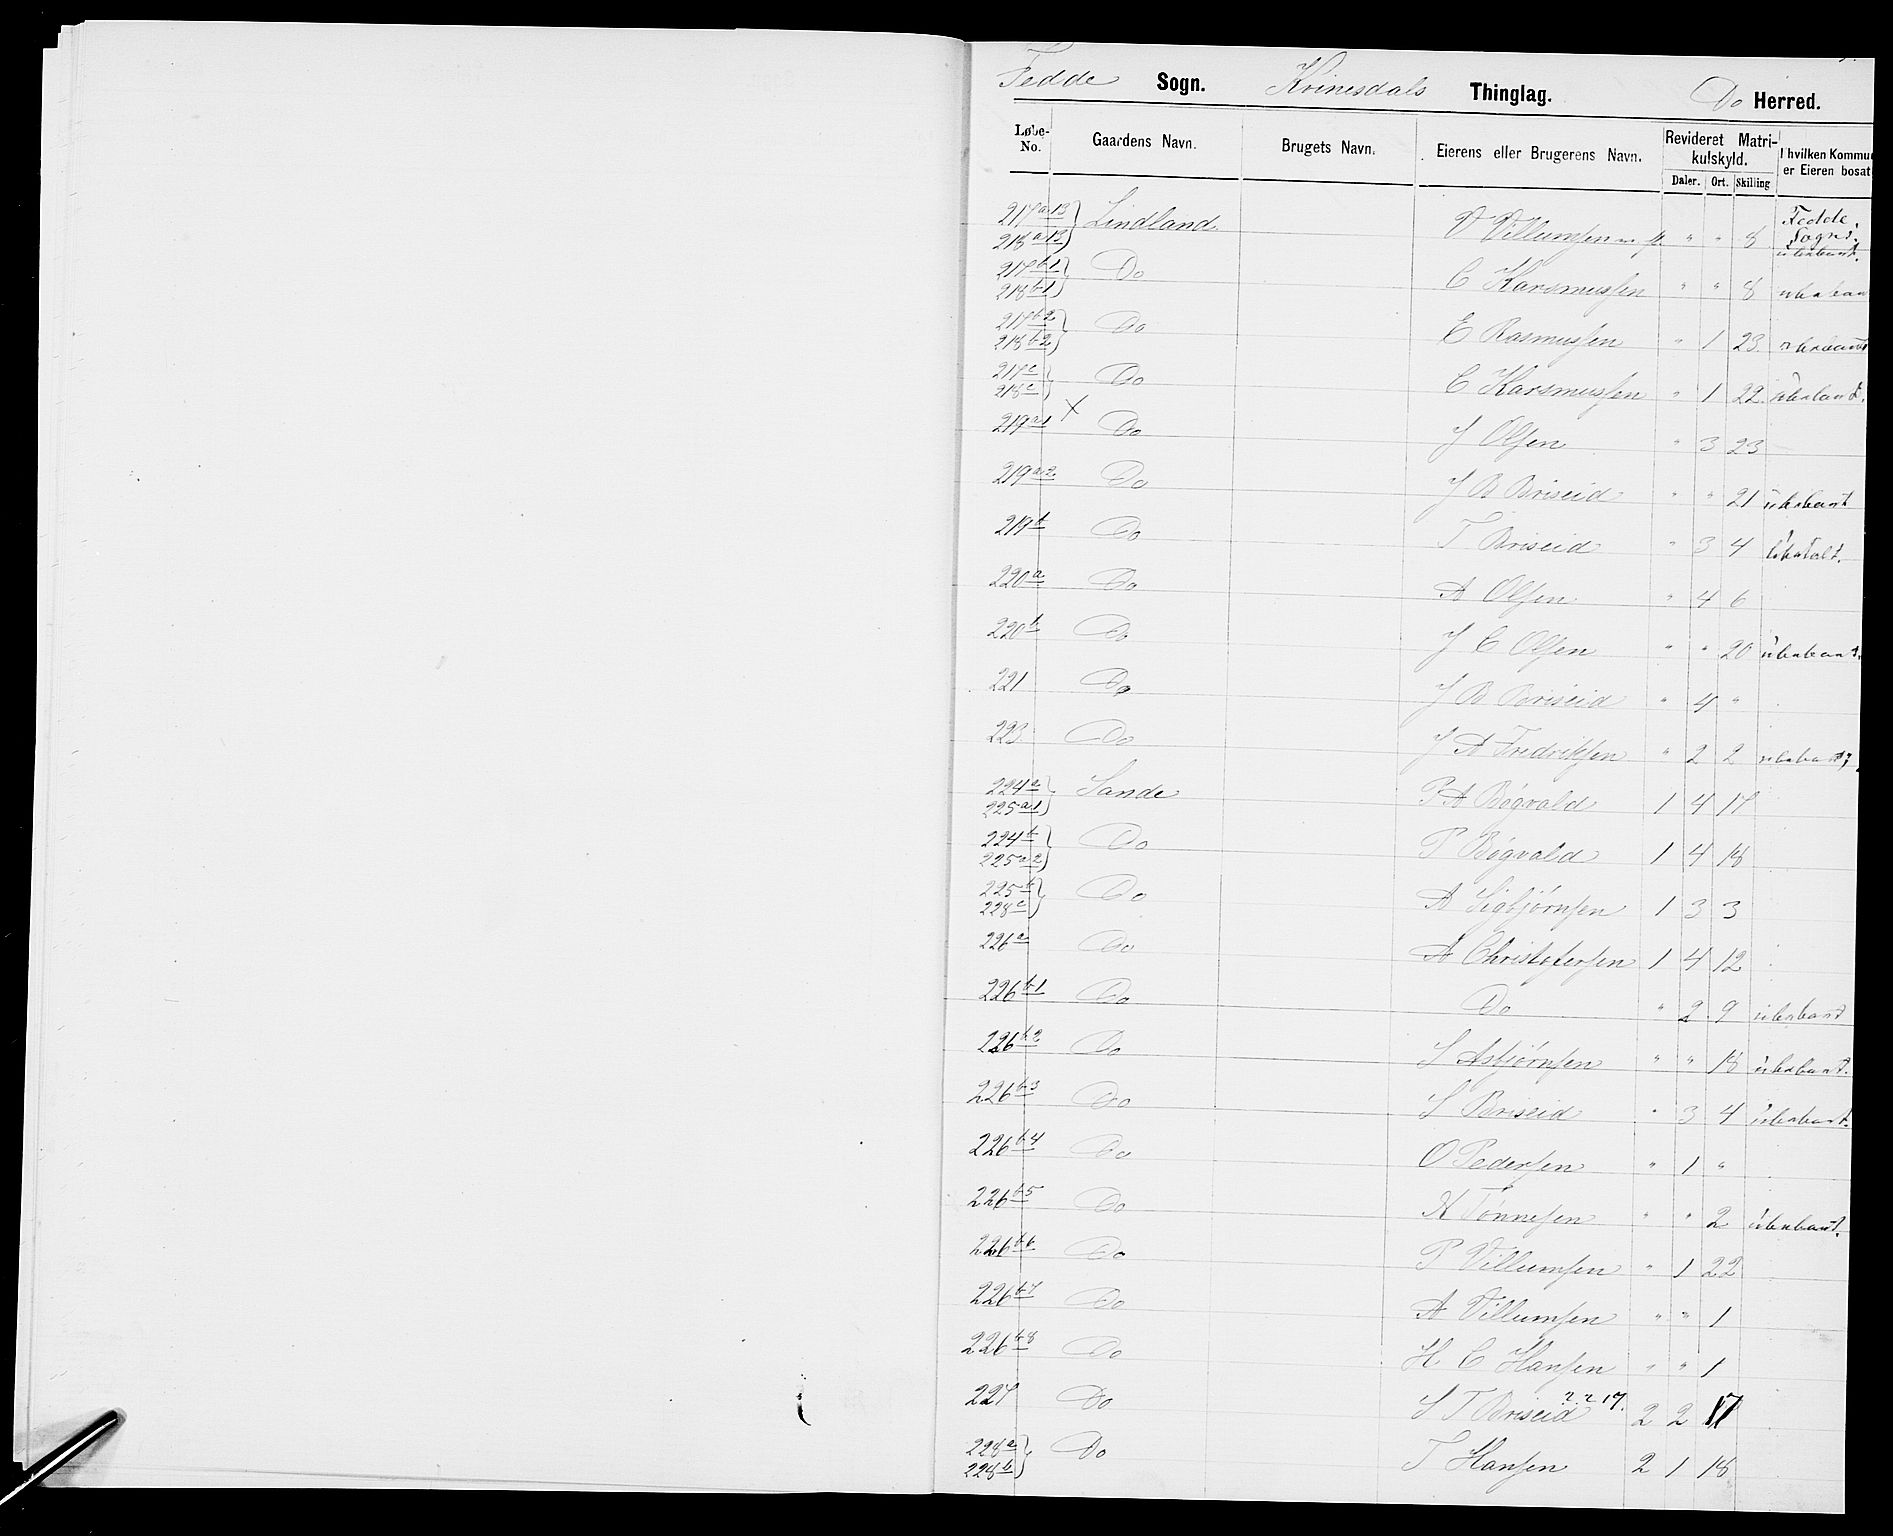 Fedde Sogn. Kvinesdals Thinglag. Do Herred.
Løbe-No. Gaardens Navn. Brugets Navn. Eierens eller Brugerens Navn. Revideret Matrikulskyld. I hvilken Kommu er Eieren bosat
Daler. Ort. Skilling
217 a 13 218 a 13 } Lindland V Villumsen " " 8 Fedde Sogn. ubebant.
217 b 1 218 b 1 } Do C Rasmussen " " 8 ubebau
217 b 2 218 b 2 } Do E Rasmussen " 1 23 ubebant
217 c 218 c } Do C Rasmussen " 1 22 ubebant.
219 a 1 X Do J Olsen " 3 23
219 a 2 Do J B Briseid " " 21 ubebant
219 b Do T Briseid " 3 4
220 a Do A Olsen " 4 6
220 b Do J C Olsen " " 20 ubebant.
221 Do J B Briseid " 4 "
223 Do J A Fredriksen " 2 2 ubebant,
224 a 225 a 1 } Sande P A Bøgvald 1 4 17
224 b 225 a 2 } Do P Bøgvald 1 4 18
225 b 228 c } Do A Sigbjørnsen 1 3 3
226 a Do A Christofersen 1 4 12
226 b 1 Do Do " 2 9 ubebant
226 b 2 Do S Asbjørnsen " " 18 ubebant.
226 b 3 Do S Briseid " 3 4 ubebant.
226 b 4 Do O Pedersen " 1 "
226 b 5 Do K Tønnesen " " 2 ubebant.
226 b 6 Do P Villumsen " 1 22
226 b 7 Do A Villumsen " " 1
226 b 8 Do H C Hansen " " 1
227 Do S T Briseid 2 2 17. 2 2 17
228 a 228 b } Do T Hansen 2 1 18